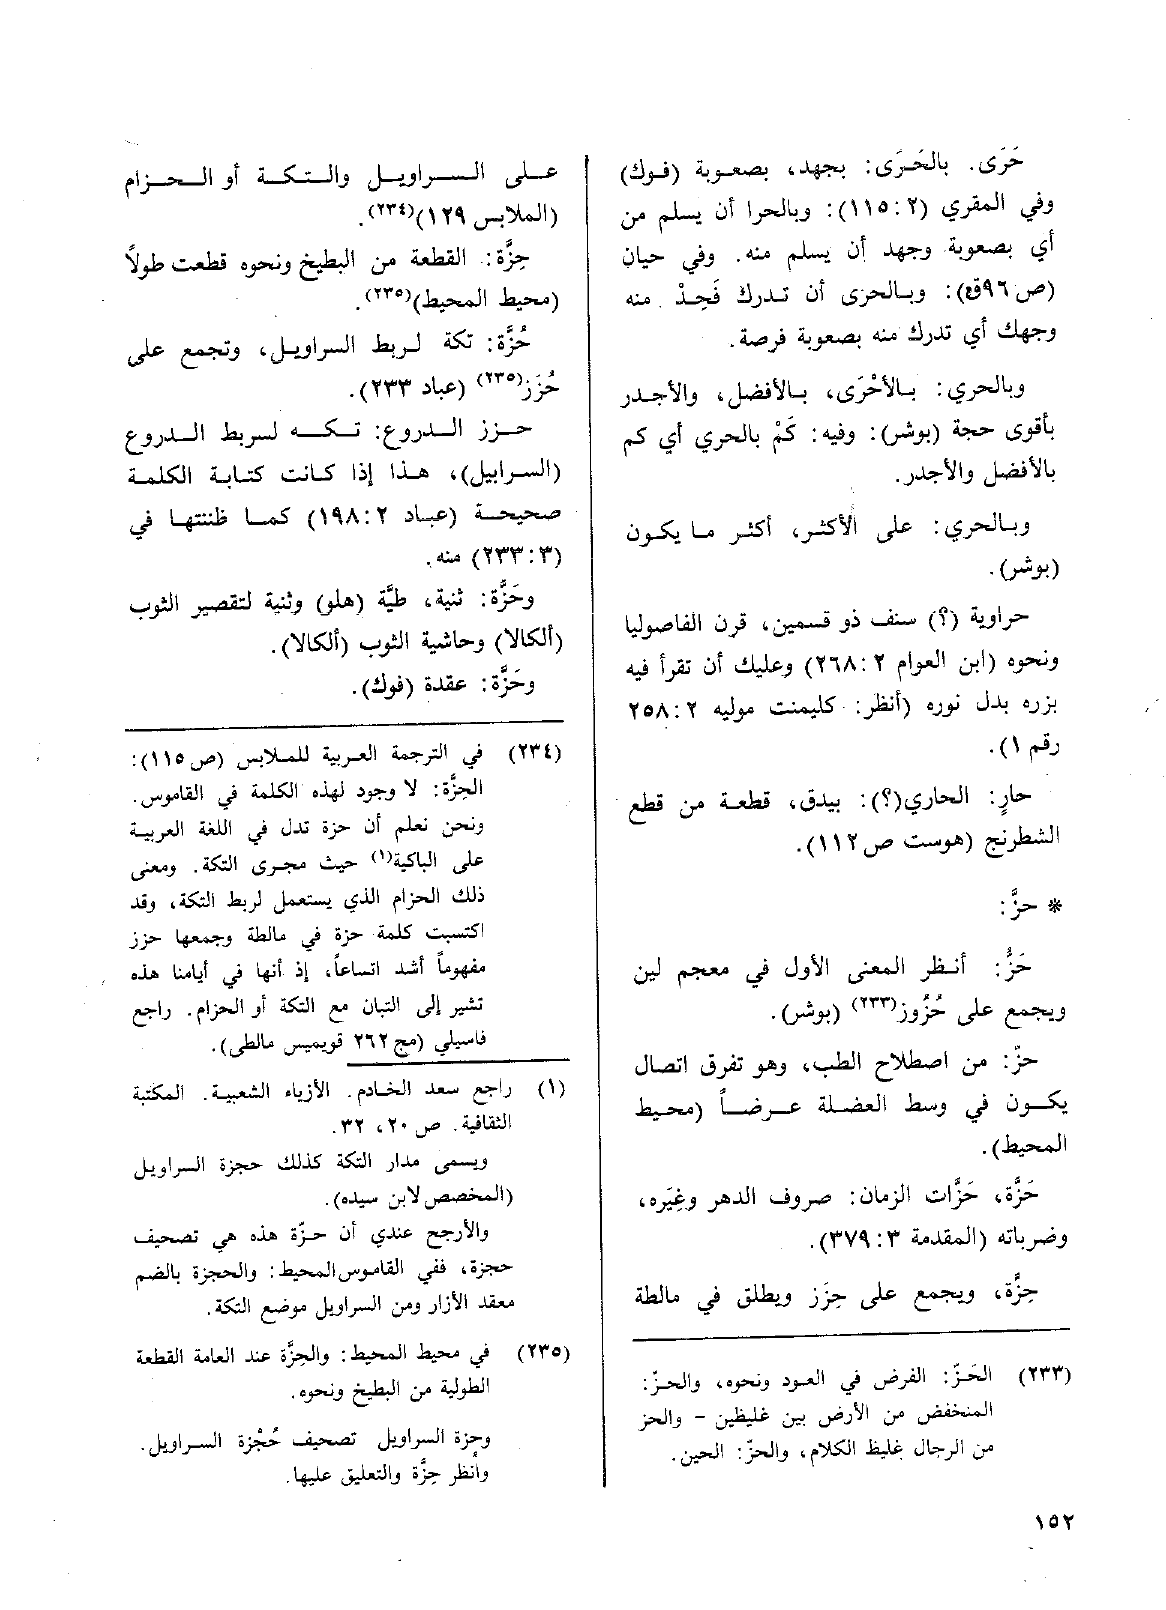 حَرَى. بالحَرَى: بجهد، بصعوبة (فوك)
وفي المقري (٢:١١٥): وبالحرا أن يسلم من
أي بصعوبة وجهد أن يسلم منه. وفي حيان
(ص٩٦ق): وبالحرى أن تدرك فَجِدْ منه
وجهك أي تدرك منه بصعوبة فرصة.
وبالحري: بالأحْرَى، بالأفضل، والأجدر
بأقوى حجة (بوشر): وفيه: كَمْ بالحري أي كم
بالأفضل والأجدر.
وبالحري: على الأكثر، أكثر ما يكون
(بوشر).
حراوية (؟) سنف ذو قسمين، قرن الفاصوليا
ونحوه (ابن العوام ٢:٢٦٨) وعليك أن تقرأ فيه
بزره بدل نوره (أنظر: كليمنت موليه ٢:٢٥٨
رقم ١).
حارٍ: الحاري(؟): بيدق، قطعة من قطع
الشطرنج (هوست ص١١٢).
* حزَّ:
حَزُّ: أنظر المعنى الأول في معجم لين
ويجمع على حُزُوز(٢٣٣) (بوشر).
حزّ: من اصطلاح الطب، وهو تفرق اتصال
يكون في وسط العضلة عرضاً (محيط
المحيط).
حَزَّة، حَزَّات الزمان: صروف الدهر وغِيَره،
وضرباته (المقدمة ٣:٣٧٩).
حِزَّة، ويجمع على حِزَز ويطلق في مالطة
(٢٣٣) الحَزّ: الفرض في العود ونحوه، والحزّ:
المنخفض من الأرض بين غليظين - والحز
من الرجال غليظ الكلام، والحزّ: الحين.
على السراويل والتكة أو الحزام
(الملابس ١٢٩)(٢٣٤).
حِزَّة: القطعة من البطيخ ونحوه قطعت طولاً
(محيط المحيط)(٢٣٥).
حُزَّة: تكة لربط السراويل، وتجمع على
حُزَز(٢٣٥) (عباد ٢٣٣).
حزز الدروع: تكه لربط الدروع
(السرابيل)، هذا إذا كانت كتابة الكلمة
صحيحة (عباد ٢:١٩٨) كما ظننتها في
(٣:٢٣٣) منه.
وحَزَّة: ثنية، طيَّة (هلو) وثنية لتقصير الثوب
(ألكالا) وحاشية الثوب (ألكالا).
وحَزَّة: عقدة (فوك).
(٢٣٤) في الترجمة العربية للملابس (ص١١٥):
الحِزَّة: لا وجود لهذه الكلمة في القاموس.
ونحن نعلم أن حزة تدل في اللغة العربية
على الباكية(١) حيث مجرى التكة. ومعنى
ذلك الحزام الذي يستعمل لربط التكة، وقد
اكتسبت كلمة حزة في مالطة وجمعها حزز
مفهوماً أشد اتساعاً، إذ أنها في أيامنا هذه
تشير إلى التبان مع التكة أو الحزام. راجع
فاسيلي (مج ٢٦٢ قويميس مالطي).
(١) راجع سعد الخادم. الأزياء الشعبية. المكتبة
الثقافية. ص ٢٠، ٣٢.
ويسمى مدار التكة كذلك حجزة السراويل
(المخصص لابن سيده).
والأرجح عندي أن حزّة هذه هي تصحيف
حجزة، ففي القاموس المحيط: والحجزة بالضم
معقد الأزار ومن السراويل موضع التكة.
(٢٣٥) في محيط المحيط: والحِزَّة عند العامة القطعة
الطولية من البطيخ ونحوه.
وحزة السراويل تصحيف حُجْزة السراويل.
وأنظر حِزَّة والتعليق عليها.
١٥٢